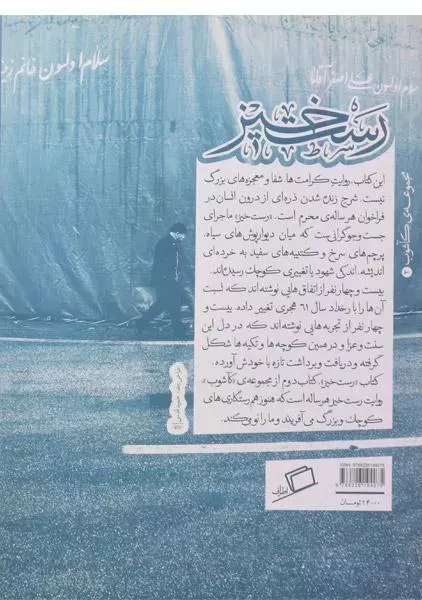 سلام اولسون خانم زینب
سلام اولسون علی اصغر آقاما
رستخیز
مجموعه‌ی کآشوب ۲
این کتاب، روایت کرامت‌ها، شفا و معجزه‌های بزرگ
نیست. شرح زنده شدن ذره‌ای از درون انسان در
فراخوان هرساله‌ی محرم است. «رست‌خیز» ماجرای
جست‌وجوگرانی‌ست که میان دیوارپوش‌های سیاه،
پرچم‌های سرخ و کتیبه‌های سفید به خرده‌ای
اندیشه، اندکی شهود یا تغییری کوچک رسیده‌اند.
بیست و چهار نفر از اتفاق‌هایی نوشته‌اند که نسبت
آن‌ها را با رخداد سال ۶۱ هجری تغییر داده. بیست و
چهار نفر از تجربه‌هایی نوشته‌اند که در دل این
سنت و عزا و در همین کوچه‌ها و تکیه‌ها شکل
گرفته و دریافت و برداشت تازه با خودش آورده.
کتاب «رست‌خیز»، کتاب دوم از مجموعه‌ی «کآشوب»،
روایت رست‌خیز هرساله است که هنوز هم رستگاری‌های
کوچک و بزرگ می‌آفریند و ما را نو می‌کند.
اطراف
۲۴۰۰۰ تومان